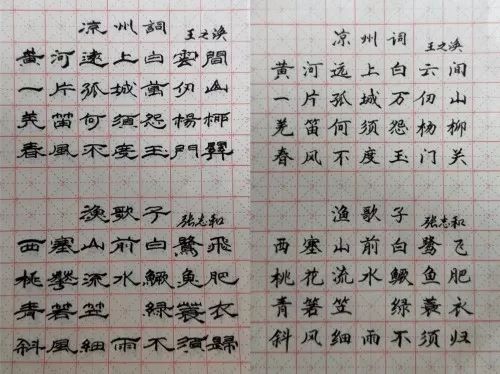 凉州詞 王之涣
黄河遠上白雲間
一片孤城萬仞山
羌笛何須怨楊柳
春風不度玉門關
漁歌子 张志和
西塞山前白鷺飛
桃華流水鱖魚肥
青箬笠 綠蓑衣
斜風細雨不須歸
凉州词 王之涣
黄河远上白云间
一片孤城万仞山
羌笛何须怨杨柳
春风不度玉门关
渔歌子 张志和
西塞山前白鹭飞
桃花流水鳜鱼肥
青箬笠 绿蓑衣
斜风细雨不须归